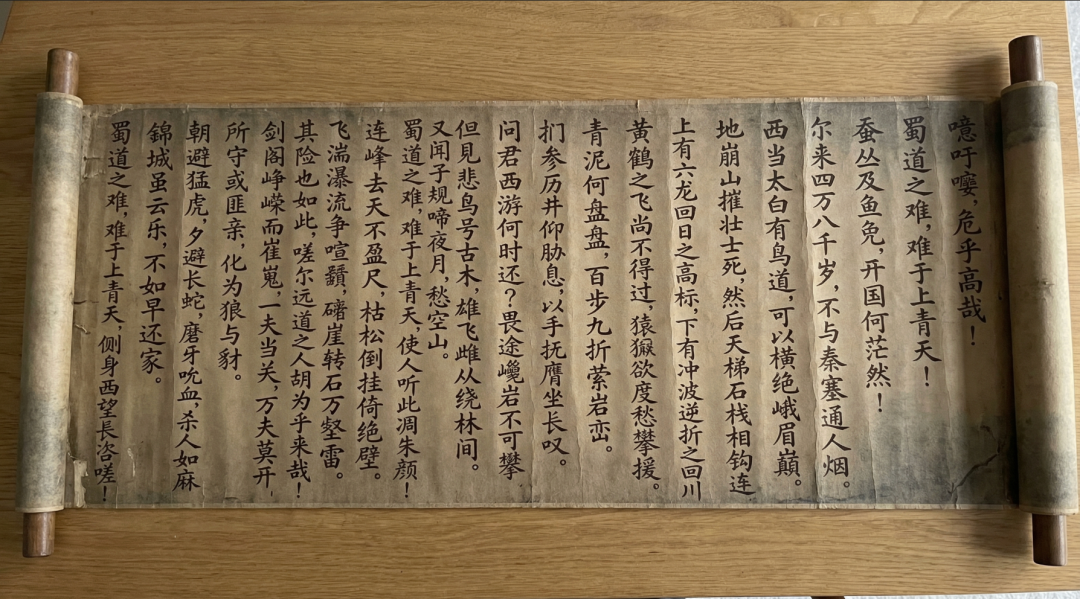 噫吁嚱，危乎高哉！
蜀道之难，难于上青天！
蚕丛及鱼凫，开国何茫然！
尔来四万八千岁，不与秦塞通人烟。
西当太白有鸟道，可以横绝峨眉巅。
地崩山摧壮士死，然后天梯石栈相钩连
上有六龙回日之高标，下有冲波逆折之回川
黄鹤之飞尚不得过，猿猴欲度愁攀援。
青泥何盘盘，百步九折萦岩峦。
扪参历井仰胁息，以手抚膺坐长叹。
问君西游何时还？畏途巉岩不可攀
但見悲鸟号古木，雄飞雌从绕林间。
又闻子规啼夜月，愁空山。
蜀道之难，难于上青天，使人听此凋朱颜！
连峰去天不盈尺，枯松倒挂倚绝壁。
飞湍瀑流争喧豗，砯崖转石万壑雷。
其险也如此，嗟尔远道之人胡为乎来哉！
剑阁峥嵘而崔嵬，一夫当关，万夫莫开
所守或匪亲，化为狼与豺。
朝避猛虎，夕避长蛇，磨牙吮血，杀人如麻
錦城虽云乐，不如早还家。
蜀道之难，难于上青天，侧身西望長咨嗟！